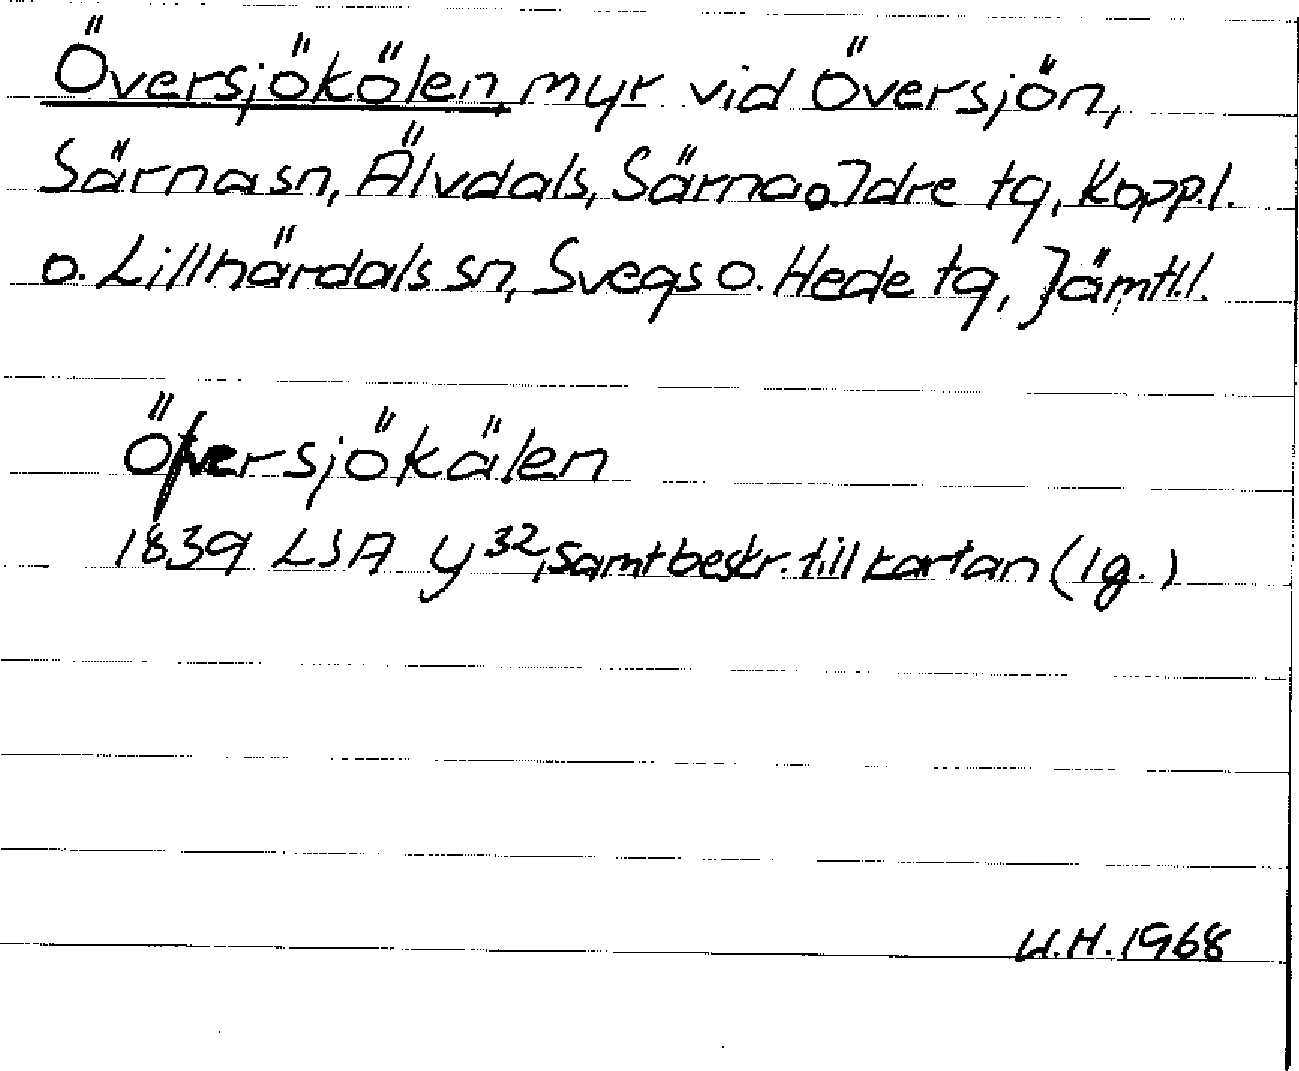 Översjökölen, myr vid Översjön,
Särna sn, Älvdals, Särna o. Idre tg, Koppl.
o. Lillhärdals sn, Svegs o. Hede tg, Jämtl.l.
Öfversjökälen
1839 LSA y 32, samt beskr. till kartan (1g.)
U.H. 1968